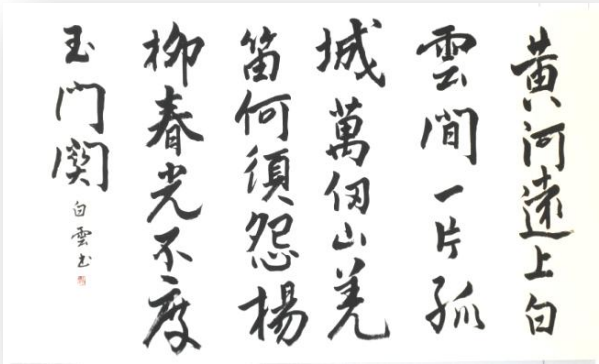 黃河遠上白
雲間一片孤
城萬仞山羌
笛何須怨楊
柳春光不度
玉門関
白雲书